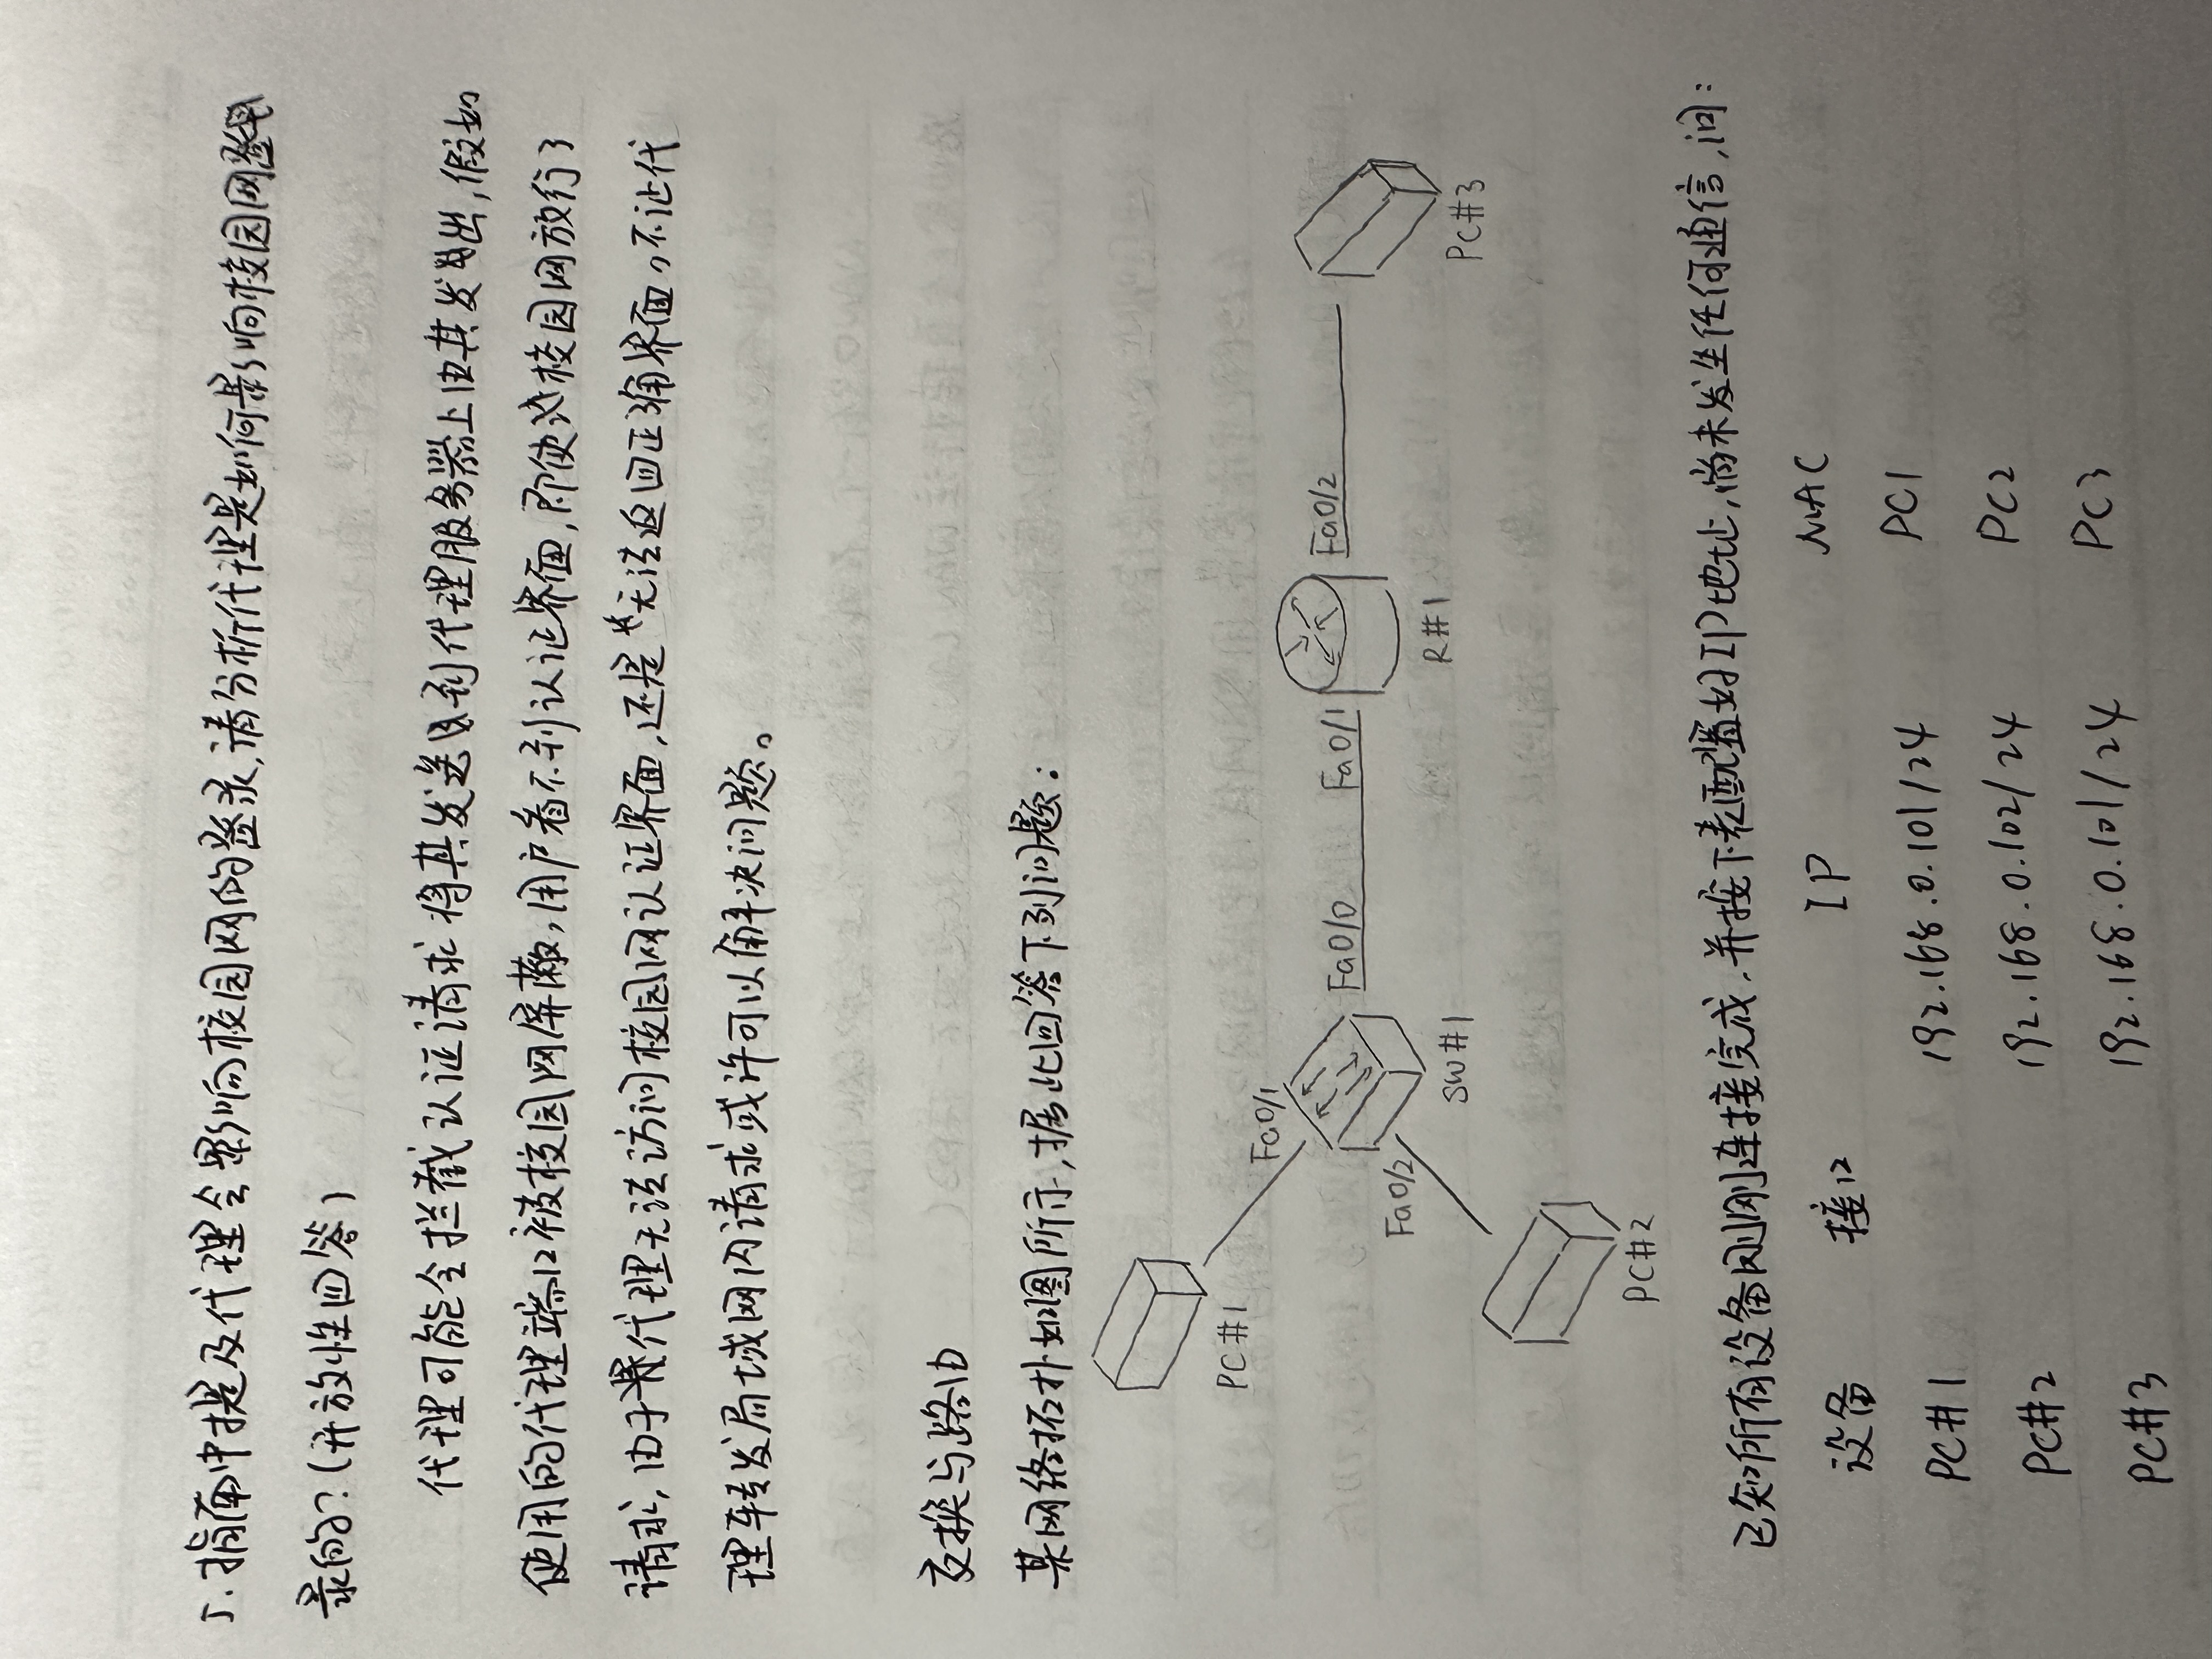 5.指南中提及代理会影响校园网的登录,请分析代理是如何影响校园网登
录的?(开放性回答)
代理可能会拦截认证请求将其发送到代理服务器上由其发出,假如
使用的代理端口被校园网屏蔽,用户看不到认证界面,即使校园网放行了
请求,由于代理无法访问校园网认证界面,还是无法返回正确界面。不让代
理转发局域网内请求或许可以解决问题。
交换与路由
某网络拓扑如图所示,据此回答下列问题:
PC#1
Fa0/1
Fa0/0 Fa0/1 Fa0/2
Fa0/2
SW#1 R#1 PC#3
PC#2
已知所有设备刚刚连接完成,并按下表配置好IP地址,尚未发生任何通信,问:
设备 接口 IP MAC
PC#1 192.168.0.101/24 PC1
PC#2 192.168.0.102/24 PC2
PC#3 192.168.0.101/24 PC3